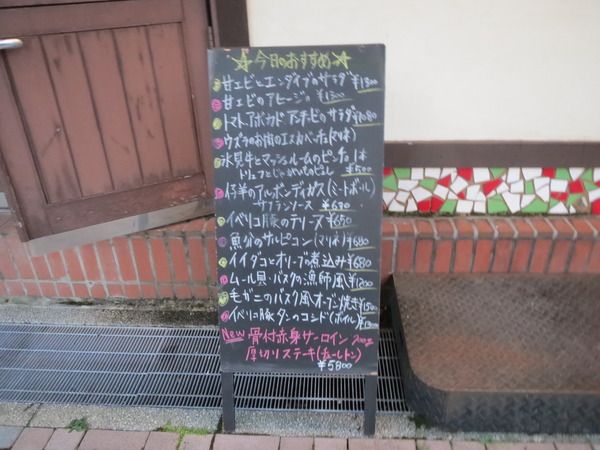 ☆今日のおすすめ☆
甘エビとエンダイブのサラダ ¥1300
甘エビのアヒージョ ¥1300
トマト、アボカド アンチョビのサラダ ¥1080
ウズラのお酢のエスカベーチェ
氷見牛とマッシュルームのピンチョ 1本
トリュフとじゃがいものピュレ ¥500
仔羊のアルボンディガス(ミートボール)
サフランソース ¥630
イベリコ豚のテリーヌ ¥650
魚介のサルピコン(マリネ) ¥680
イイダコとオリーブの煮込み ¥680
ムール貝 バスクの漁師風 ¥1200
毛ガニのバスク風オーブン焼き ¥1500
イベリコ豚タンのコシード(ボイル)
New 骨付赤身サーロイン 700g
厚切りステーキ(チュレトン)
¥5800